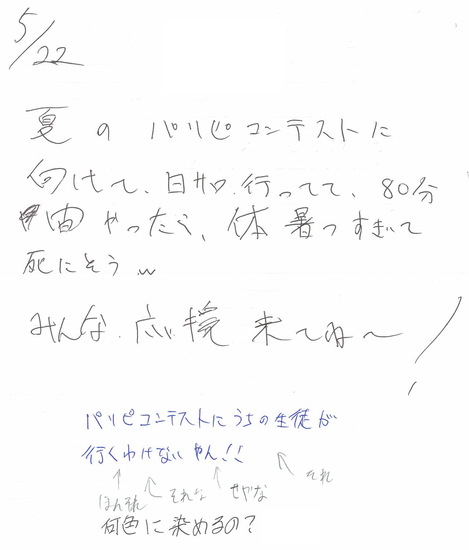 5/22
夏の パリピコンテストに
向けて、日サロ行ってて、80分
間 やったら、体 暑つすぎて
死にそうw
みんな 応援 来てね〜!
パリピコンテストにうちの生徒が
行くわけないやん!!
↑ ↑ ↑ ↑ それ
ほんそれ それな せやな
何色に染めるの?